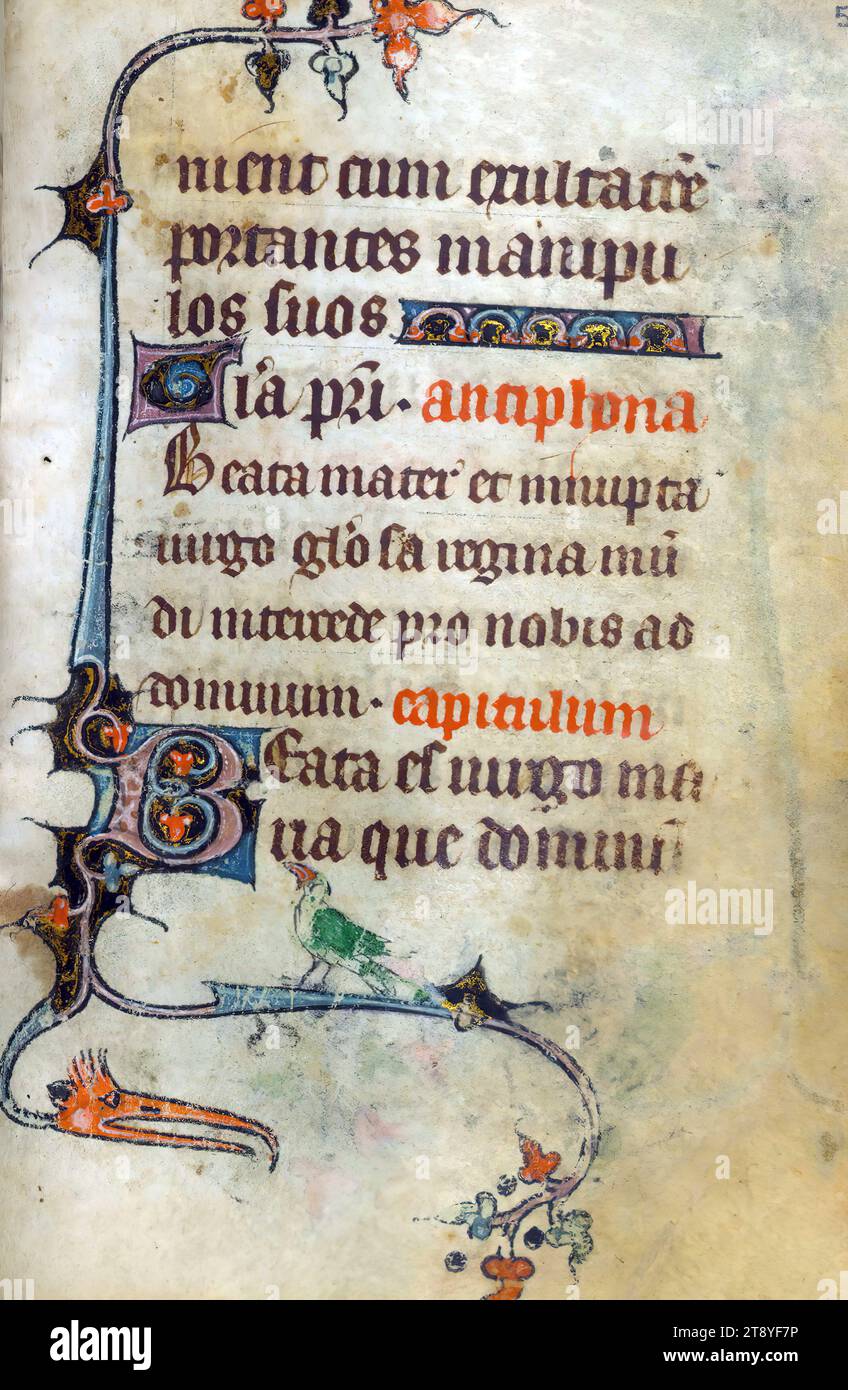 5
nient cum exultac̄ōe
portantes manipu
los suos
Gl'a p̄ri. antiphona
Beata mater et innupta
uirgo gl'osa regina mū
di intercede pro nobis ad
dominum. capitulum
Beata es uirgo ma
ria que domini
alamy
Image ID: 2T8YF7P
www.alamy.com